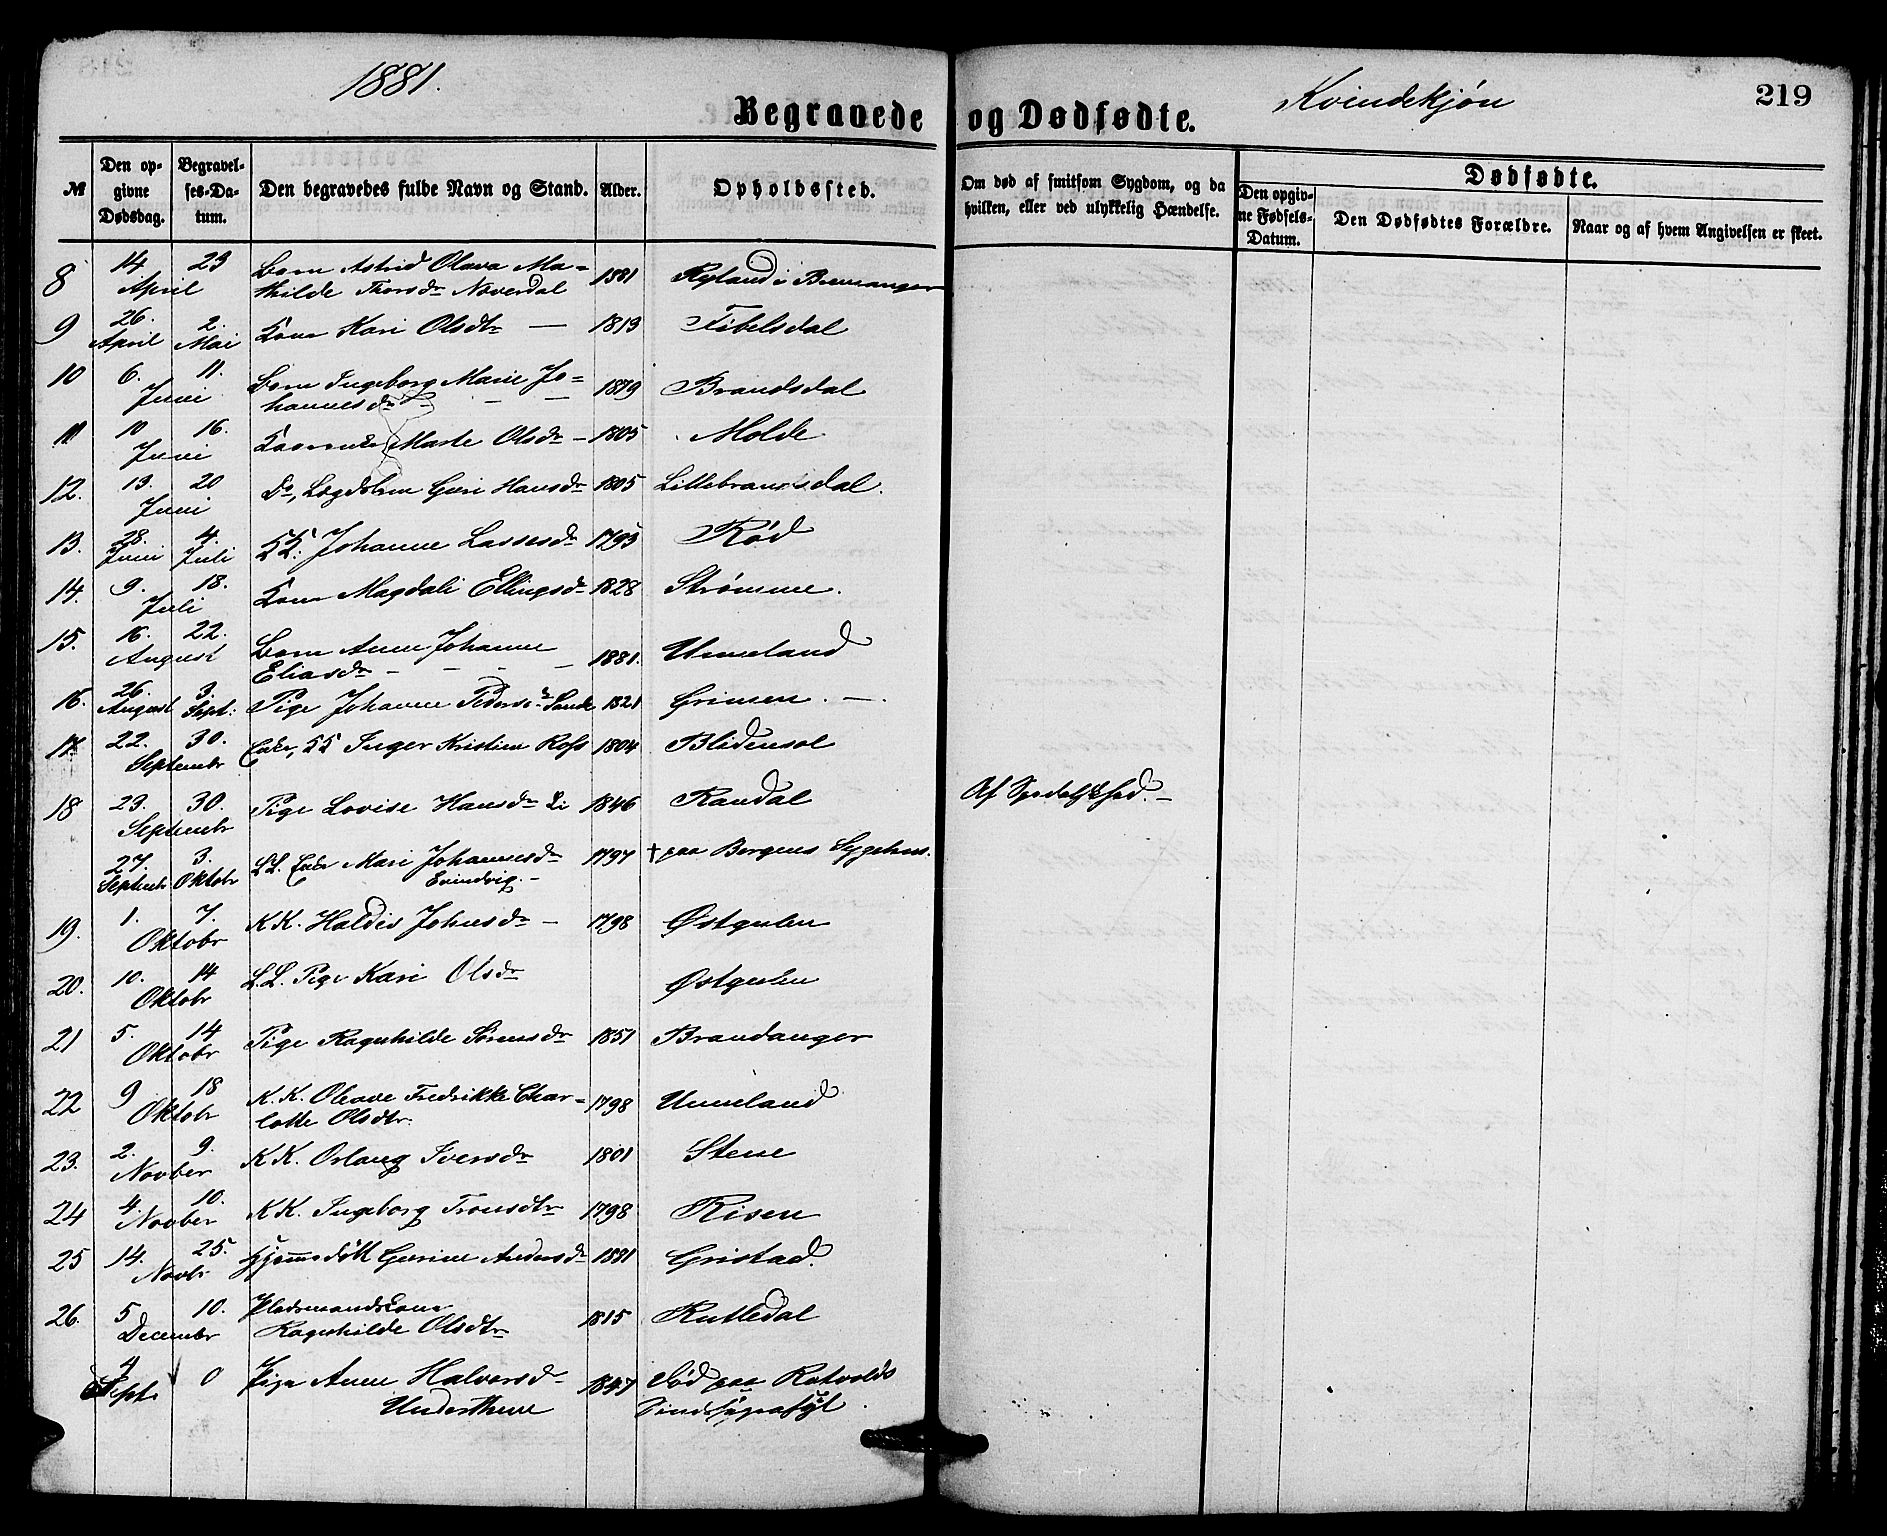 1881.
Begravede og Dødfødte.
Kvindekjøn
219
№
Den opgivne Dødsdag.
Begravelses-Datum.
Den begravedes fulde Navn og Stand.
Alder.
Opholdssted.
Om død af smitsom Sygdom, og da hvilken, eller ved ulykkelig Hændelse.
Dødfødte.
Den opgivne Fødsels-Datum.
Den Dødfødtes Forældre.
Naar og af hvem Angivelsen er skeet.
8 14 23 April Barn Astrid Olava Ma=
thilde Thorsdr Noverdal 1881 Ryland i Bremanger
9 26. April 2. Mai Kone Kari Olsdtr — 1819
10 6. 11. Juni Barn Ingeborg Marie Jo=
hannesdr 1879 Brandsdal
11 10 16. Juni Marte Olsdr — 1805 Molde
12. 13. 20 Juni Do, Guri Hansdr 1805 Littlebrandsdal.
13. 28. Juni 4. Juli Johanne Lassesdr 1793 Rød
14. 9. 18. Juli Kone Magdali Ellingsdr 1828 Strømme.
15. 16. 22. August Barn Anne Johanne
Eliasdr — — — 1881. Unneland
16. 26. August 3. Sept: Pige Johanne Pedersdr Sande 1821 Grinsen. —.
17 22. 30. Septembr Enke, Inger Kristine Ross 1804 Blidensol
18 23. 30. Septembr Pige Lovise Hansdr Li 1846 Randal Af Spedalskhed. —
27. Septembr 3. Oktobr L.L. Enke Mari Johannesdr
Evindvig. — 1797 † paa Bergens Sygehus.
19. 1. 7. Oktobr K.K. Haldis Johnsdr — 1798 Østgulen
20. 10. 14 Oktobr L.L. Pige Kari Olsdr Østgulen
21 5. 14 Oktobr Pige Ragnhilde Sørensdr 1851 Brandanger
22 9 18 Oktobr K.K. Oleave Fredrikke Char=
lotte Olsdtr. 1798 Unneland
23. 2. 9. Novber K.K. Orlaug Iversdr 1801 Stene
24 4. 10. Novber K.K. Ingeborg Tronsdtr 1798 Risen
25 14. 25. Novbr Hjemmedøbt Gurine Andersdr 1881 Gristad.
26. 5 10. Decembr Pladsmandskone
Ragnhilde Olsdtr 1815 Rutledal
4 Septr 0 Pige Anne Halvorsdr
Underthun 1847 Død paa Rotvolds
Sindssygeasyl.